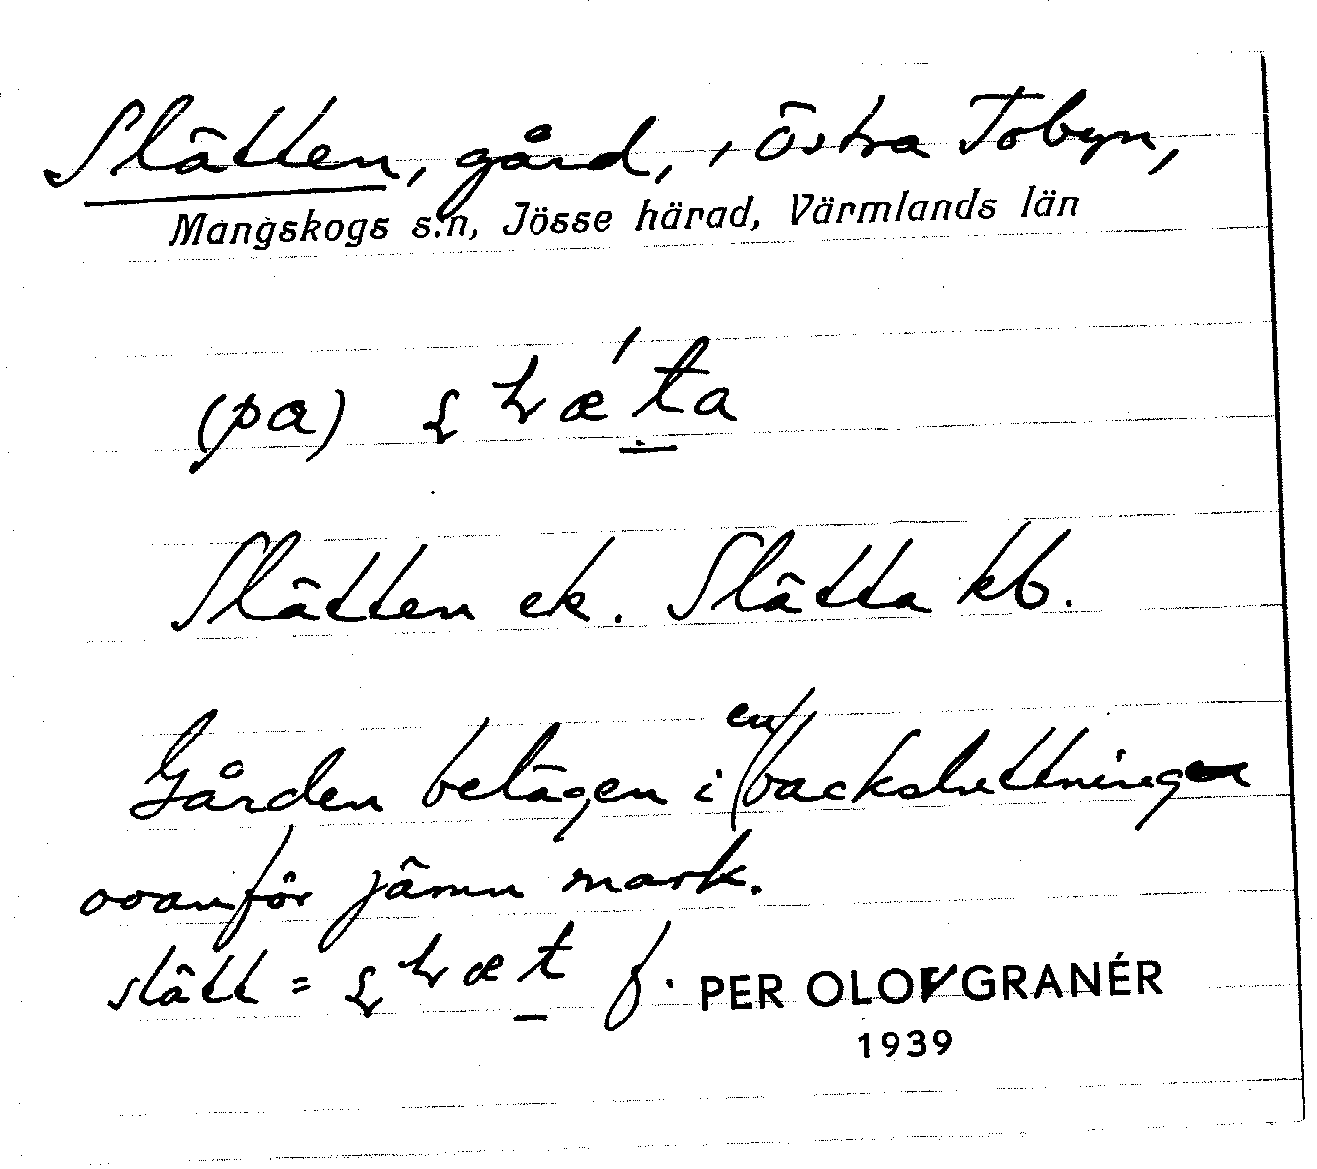 Slätten, gård, i Östra Tobyn,
Mangskogs s:n, Jösse härad, Värmlands län
(pa)
Slätten ek. Slätta kb.
Gården belägen i en backsluttning
ovanför jämn mark.
slätt = f. PER OLOF GRANÉR
1939